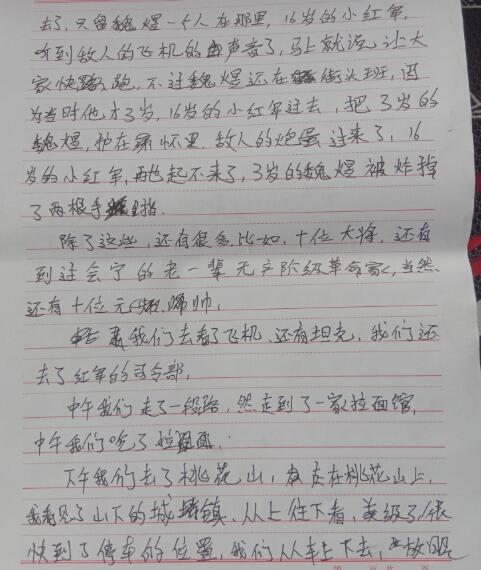 去了，只留魏煜一个人在那里，16岁的小红军，
听到敌人的飞机的声音了，马上就说让大
家快跑，不过魏煜还在街头玩，因
为当时他才3岁，16岁的小红军过去，把3岁的
魏煜，护在怀里．敌人的炮蛋过来了，16
岁的小红军，再也起不来了，3岁的魏煜被炸掉
了两根手指．
除了这些，还有很多，比如，十位大将，还有
到过会宁的老一辈无产阶级革命家，当然
还有十位元帅．
我们去看了飞机，还有坦克，我们还
去了红军的司令部，
中午我们走了一段路，然走到了一家拉面馆，
中午我们吃了拉面．
下午我们去了桃花山，在桃花山上，
我看见了山下的城镇、从上往下看，美级了！
快到了停车的位置，我们从车上下去，